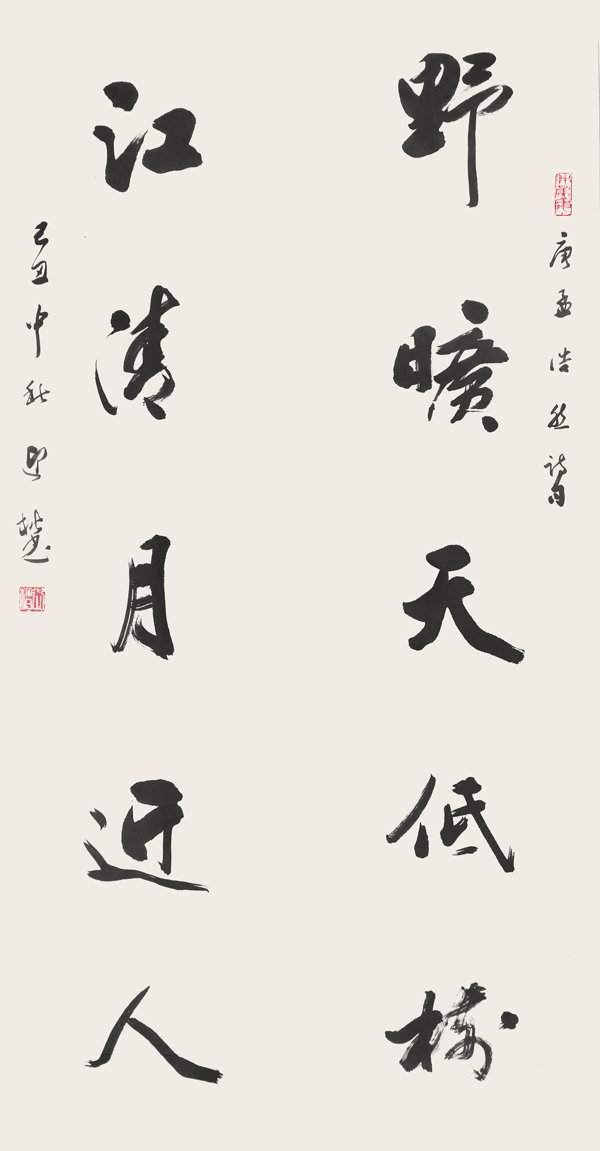 唐孟浩然詩句
野曠天低樹
江清月近人
己丑中秋